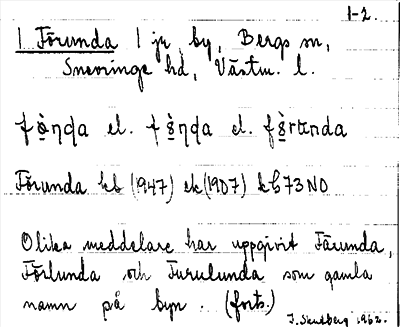 1-2.
1 Förunda 1 jr, by, Bergs sn,
Snevringe hd, Västm. l.
fö̀ṇḍa el. fö̀ṇḍa el. fö̀runda
Förunda kb (1947) ek (1907) kb 73 NO
Olika meddelare har uppgivit Färunda,
Förlunda och Furulunda som gamla
namn på byn. (forts.)
J. Sundberg 1962.